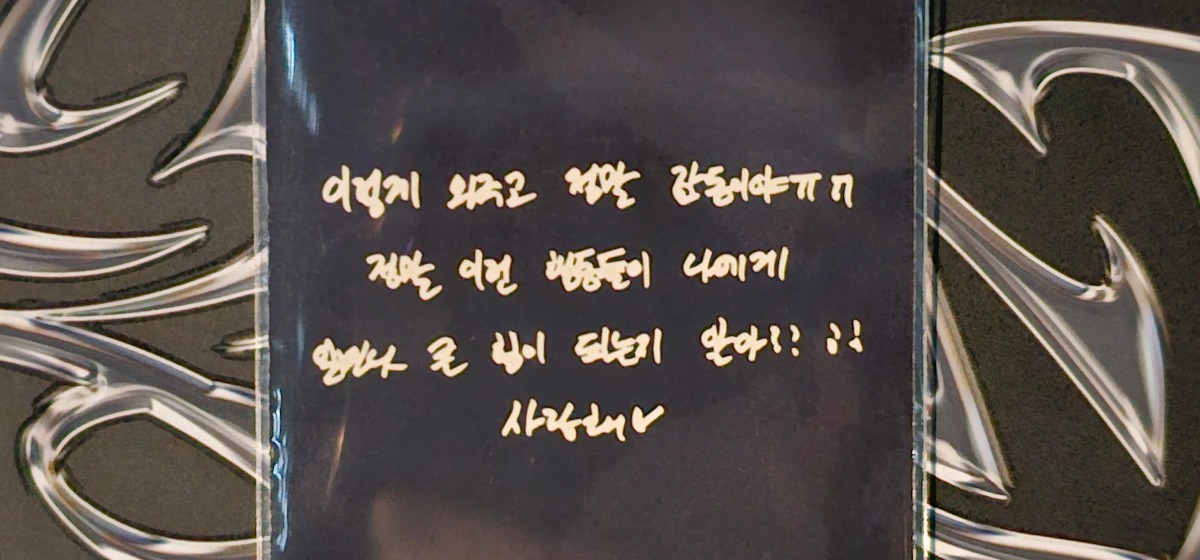 이렇게 와주고 정말 감동이야ㅠㅠ
정말 이런 행동들이 나에게
얼마나 큰 힘이 되는지 알아??
사랑해